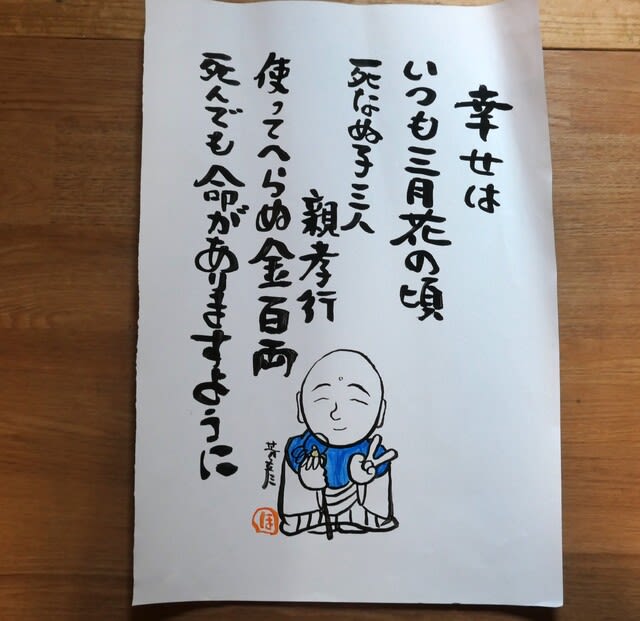 幸せは
いつも三月花の頃
死なぬ子三人
親孝行
使ってへらぬ金百両
死んでも命がありますように
ほ